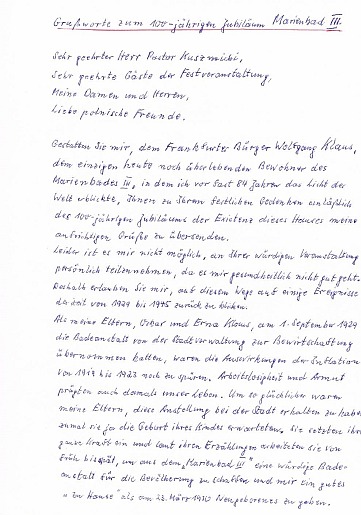 Grußworte zum 100-jährigen Jubiläum Marienbad III.
Sehr geehrter Herr Pastor Kuszmichi,
Sehr geehrte Gäste der Festveranstaltung,
Meine Damen und Herren,
Liebe polnische Freunde.
Gestatten Sie mir, dem Frankfurter Bürger Wolfgang Klaus,
dem einzigen heute noch überlebenden Bewohner des
Marienbades III, in dem ich vor fast 84 Jahren das Licht der
Welt erblickte, Ihnen zu Ihrem festlichen Gedenken anläßlich
des 100-jährigen Jubiläums der Existenz dieses Hauses meine
aufrichtigen Grüße zu übersenden.
Leider ist es mir nicht möglich, an Ihrer würdigen Veranstaltung
persönlich teilzunehmen, da es mir gesundheitlich nicht gut geht.
Deshalb erlauben Sie mir, auf diesem Wege auf einige Ereignisse
der Zeit von 1929 bis 1945 zurück zu blicken.
Als meine Eltern, Oskar und Erna Klaus, am 1. September 1929
die Badeanstalt von der Stadtverwaltung zur Bewirtschaftung
übernommen hatten, waren die Auswirkungen der Inflation
von bis 1923 noch zu spüren. Arbeitslosigkeit und Armut
prägten auch damals unser Leben. Um so glücklicher waren
meine Eltern, diese Anstellung bei der Stadt erhalten zu haben
zumal sie ja die Geburt ihres Kindes erwarteten. Sie setzten ihre
ganze Kraft ein und laut ihren Erzählungen arbeiteten sie von
früh bis spät, um aus dem „Marienbad III" eine würdige Bade-
anstalt für die Bevölkerung zu schaffen und mir ein gutes
„zu Hause" als am 23. März 1930 Neugeborenes zu geben.